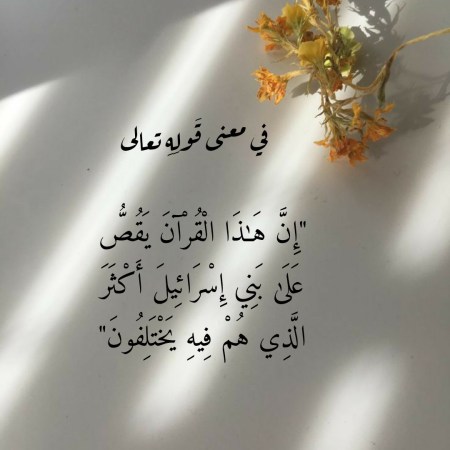 في معنى قَولِهِ تعالى
"إِنَّ هَـٰذَا الْقُرْآنَ يَقُصُّ
عَلَىٰ بَنِي إِسْرَائِيلَ أَكْثَرَ
الَّذِي هُمْ فِيهِ يَخْتَلِفُونَ"